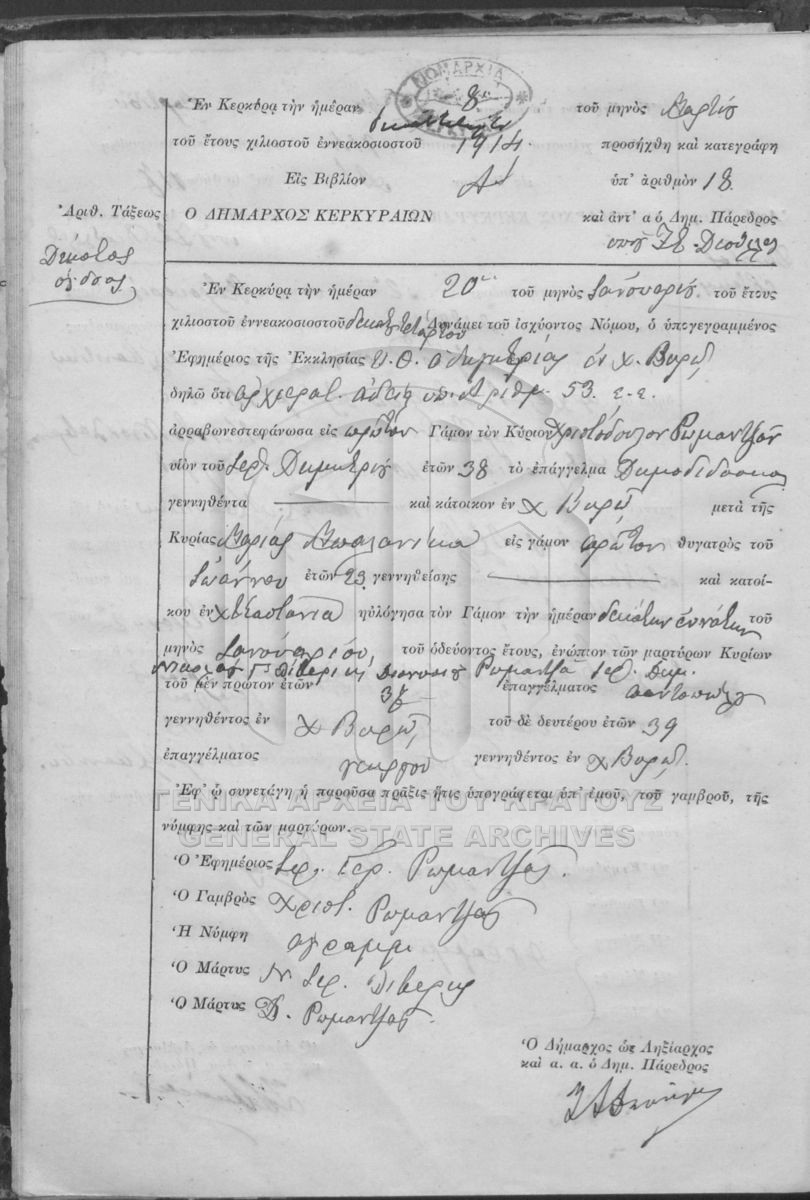 ΝΟΜΑΡΧΙΑ
Ἐν Κερκύρᾳ τὴν ἡμέραν 8 τοῦ μηνὸς Μαρτίου
τοῦ ἔτους χιλιοστοῦ ἐννεακοσιοστοῦ 1914 προσήχθη καὶ κατεγράφη
Εἰς Βιβλίον Α' ὑπ' ἀριθμὸν 18
Ἀριθ. Τάξεως Ο ΔΗΜΑΡΧΟΣ ΚΕΡΚΥΡΑΙΩΝ καὶ ἀντ' α ὁ Δημ. Πάρεδρος
Δέκατος
ὄγδοος
Ἐν Κερκύρᾳ τὴν ἡμέραν 20 τοῦ μηνὸς Ἰανουαρίου τοῦ ἔτους
χιλιοστοῦ ἐννεακοσιοστοῦ δεκάτου τετάρτου Δυνάμει τοῦ ἰσχύοντος Νόμου, ὁ ὑπογεγραμμένος
Ἐφημέριος τῆς Ἐκκλησίας Υ. Θ. Οδηγητρίας ἐν χ. Βαρῦ
δηλῶ ὅτι ἀρχιερατ. ἀδείᾳ ὑπ' ἀριθμ. 53. ε. ε.
ἀρραβωνεστεφάνωσα εἰς πρῶτον Γάμον τὸν Κύριον Χριστόδουλον Ρωμαντζᾶν
υἱὸν τοῦ Ἱερ. Δημητρίου ἐτῶν 38 τὸ ἐπάγγελμα Δημοδιδάσκαλον
γεννηθέντα καὶ κάτοικον ἐν χ Βαρῦ μετὰ τῆς
Κυρίας Μαρίας εἰς γάμον πρῶτον θυγατρὸς τοῦ
Ἰωάννου ἐτῶν 23 γεννηθείσης καὶ κατοί-
κου ἐν χ ηὐλόγησα τὸν Γάμον τὴν ἡμέραν δεκάτην ἐννάτην τοῦ
μηνὸς Ἰανουαρίου τοῦ ὁδεύοντος ἔτους, ἐνώπιον τῶν μαρτύρων Κυρίων
Διονυσίου Ρωμαντζᾶ Ἱερ. Δημ.
τοῦ μὲν πρώτου ἐτῶν ἐπαγγέλματος παντοπώλου
γεννηθέντος ἐν χ Βαρῦ, τοῦ δὲ δευτέρου ἐτῶν 39
ἐπαγγέλματος γεωργοῦ γεννηθέντος ἐν χ Βαρῦ.
Ἐφ' ᾧ συνετάγη ἡ παροῦσα πρᾶξις ἥτις ὑπογράφεται ὑπ' ἐμοῦ, τοῦ γαμβροῦ, τῆς
ΓΕΝΙΚΑ ΑΡΧΕΙΑ ΤΟΥ ΚΡΑΤΟΥΣ
νύμφης καὶ τῶν μαρτύρων.
GENERAL STATE ARCHIVES
Ὁ Ἐφημέριος Ἱερ. Γερ. Ρωμαντζᾶς.
Ὁ Γαμβρὸς Χριστ. Ρωμαντζᾶς
Ἡ Νύμφη ἀγράμμ.
Ὁ Μάρτυς Ν. Ἱερ.
Ὁ Μάρτυς Δ. Ρωμαντζᾶς.
Ὁ Δήμαρχος ὡς Ληξίαρχος
καὶ α. α. ὁ Δημ. Πάρεδρος